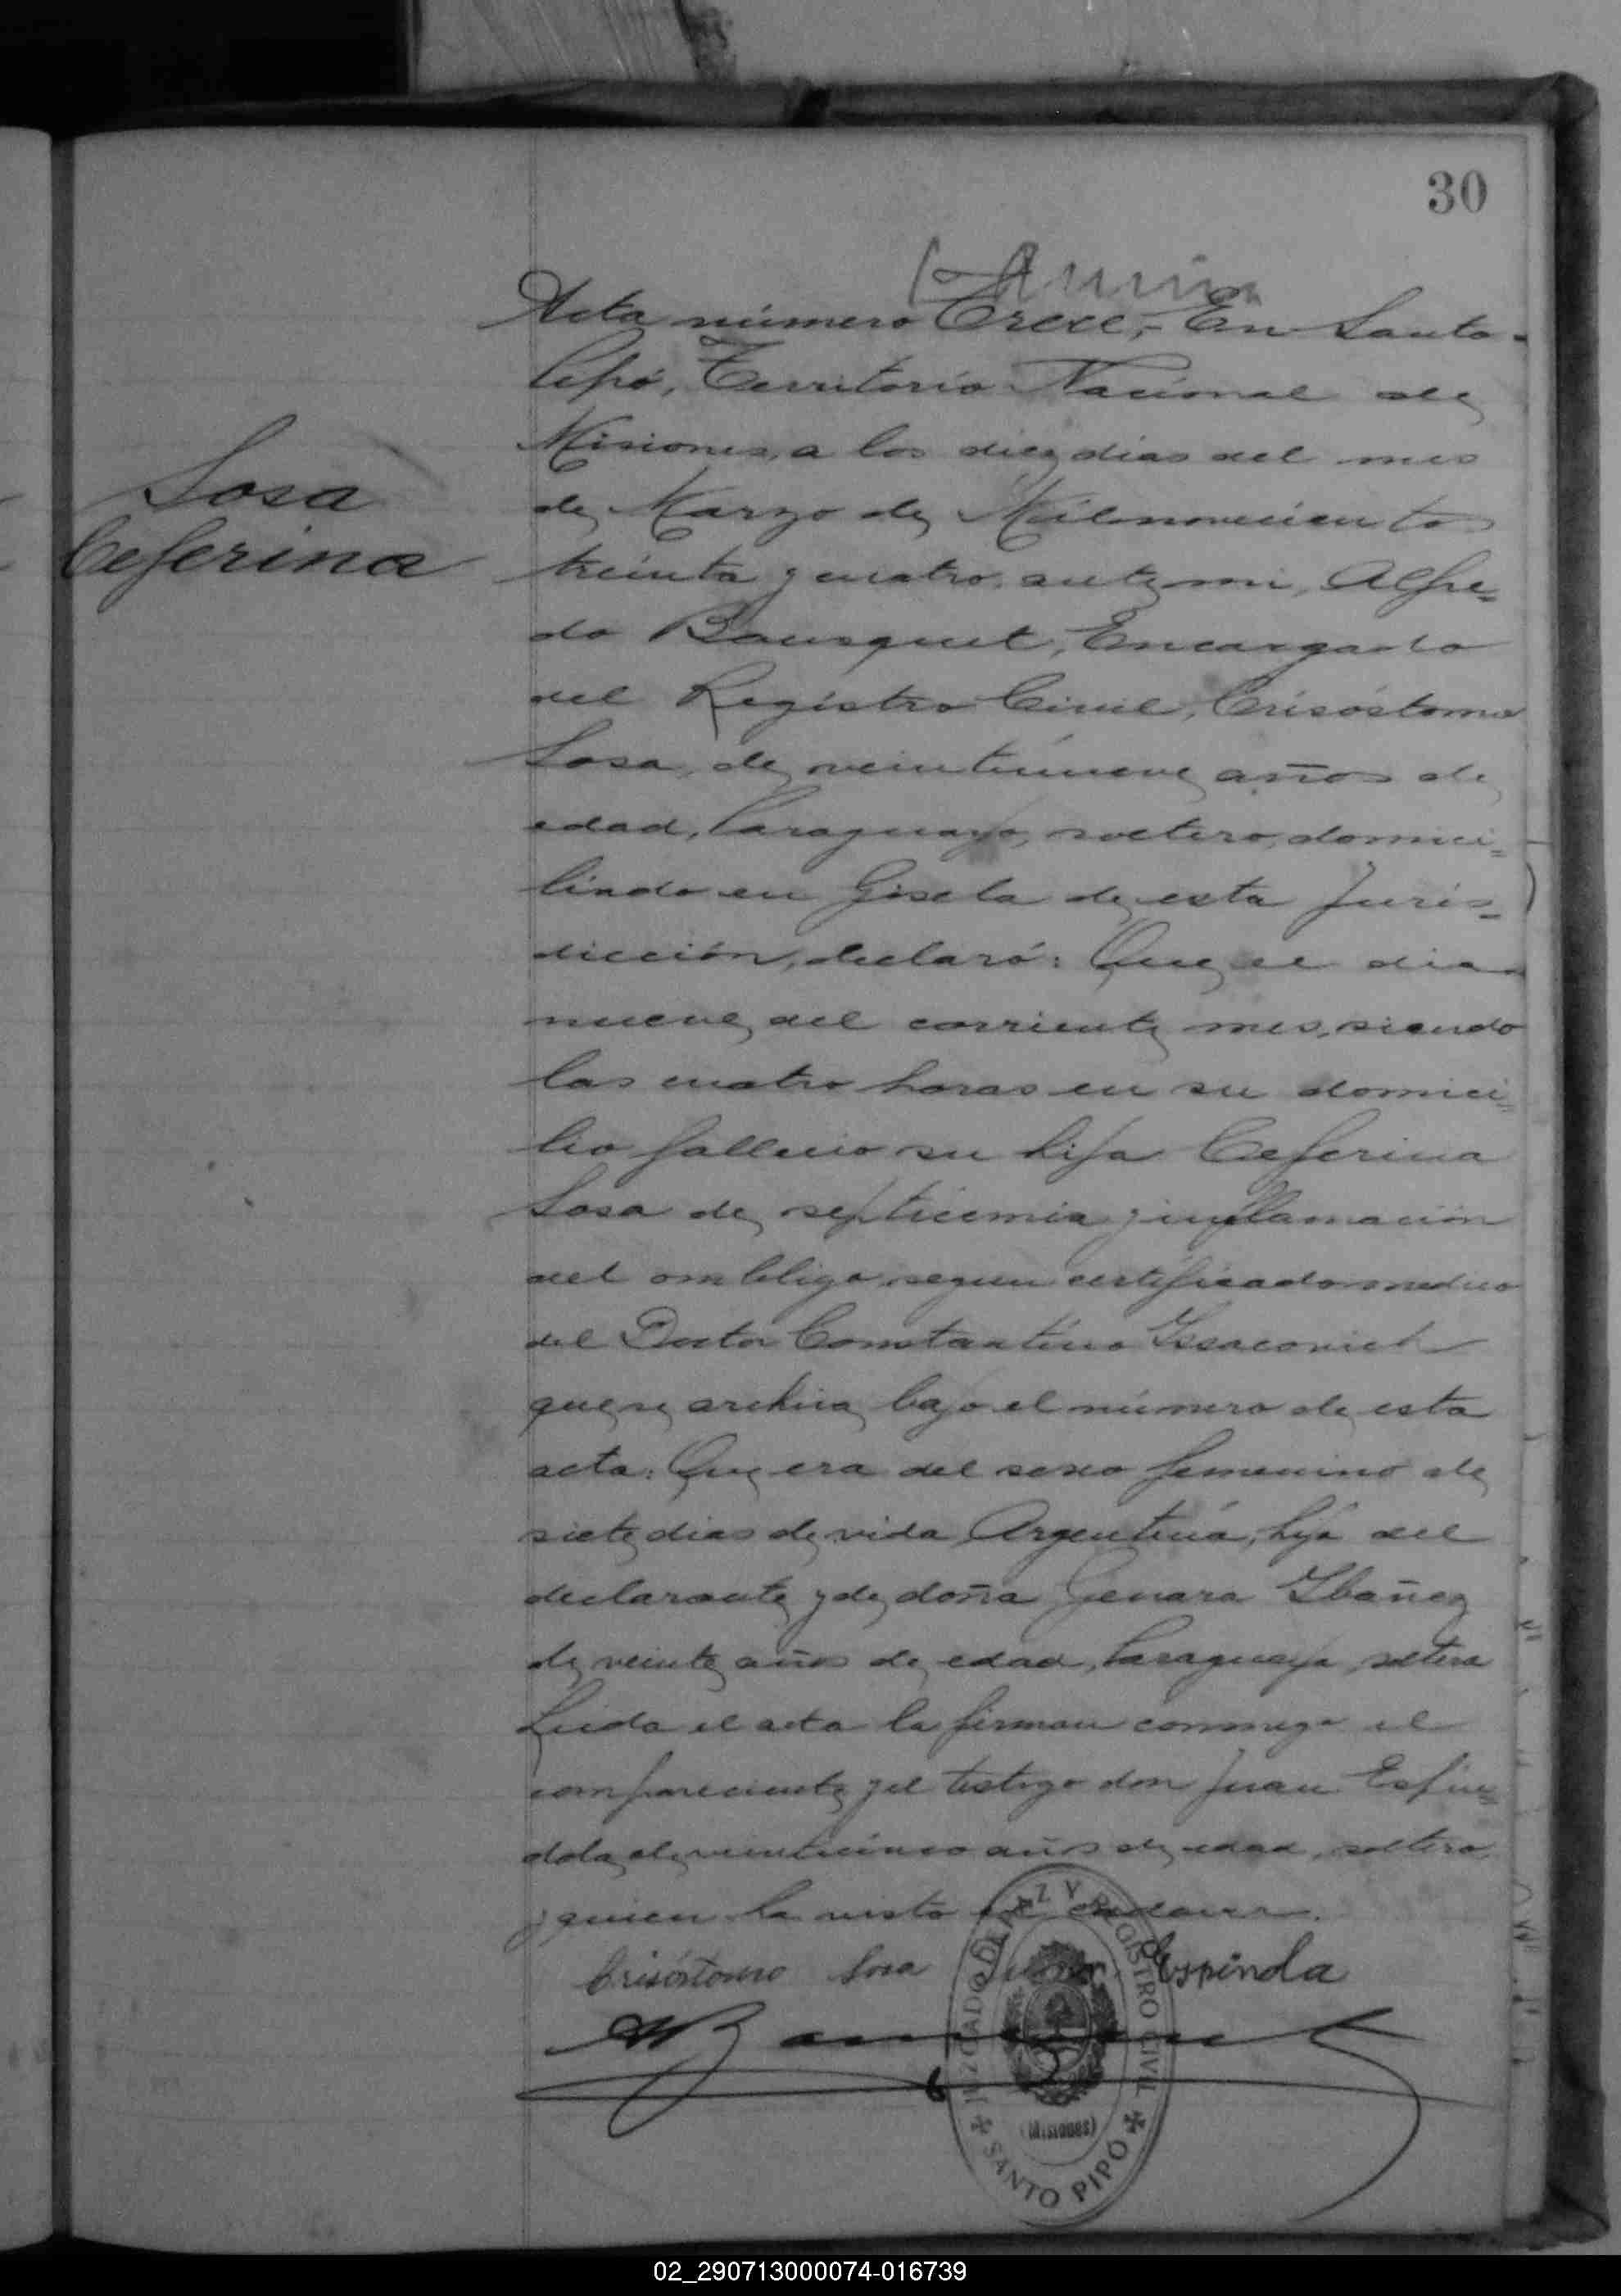 30
Acta número Trece,- En Santo-
Pipó, Territorio Nacional de
Misiones, a los diez dias del mes
de Marzo de Milnovecientos
treinta y cuatro, ante mi, Alfre=
do Bousquet, Encargado
del Registro Civil, Crisóstomo
Sosa, de veintinueve años de
edad, Paraguayo, soltero, domici=
liado en Gisela de esta Juris=
dicción, declaró: Que el dia
nueve del corriente mes, siendo
las cuatro horas en su domici=
lio fallecio su hija Ceferina
Sosa de septicemia y inflamación
del ombligo segun certificado medico
del Doctor Constantino Isaacovich
que se archiva bajo el número de esta
acta: Que era del sexo femenino de
siete dias de vida, Argentina, hija del
declarante y de doña Genara Ibañez
de veinte años de edad, Paraguaya, soltera
Leida el acta la firman conmigo el
compareciente y el testigo don Juan Espín=
dola, de veinticinco años de edad, soltero,
y quien ha visto el cadaver.
Sosa
Ceferina
Crisóstomo Sosa Juan Espindola
JUZGADO DE PAZ Y REGISTRO CIVIL
(Misiones)
SANTO PIPÓ
02_290713000074-016739